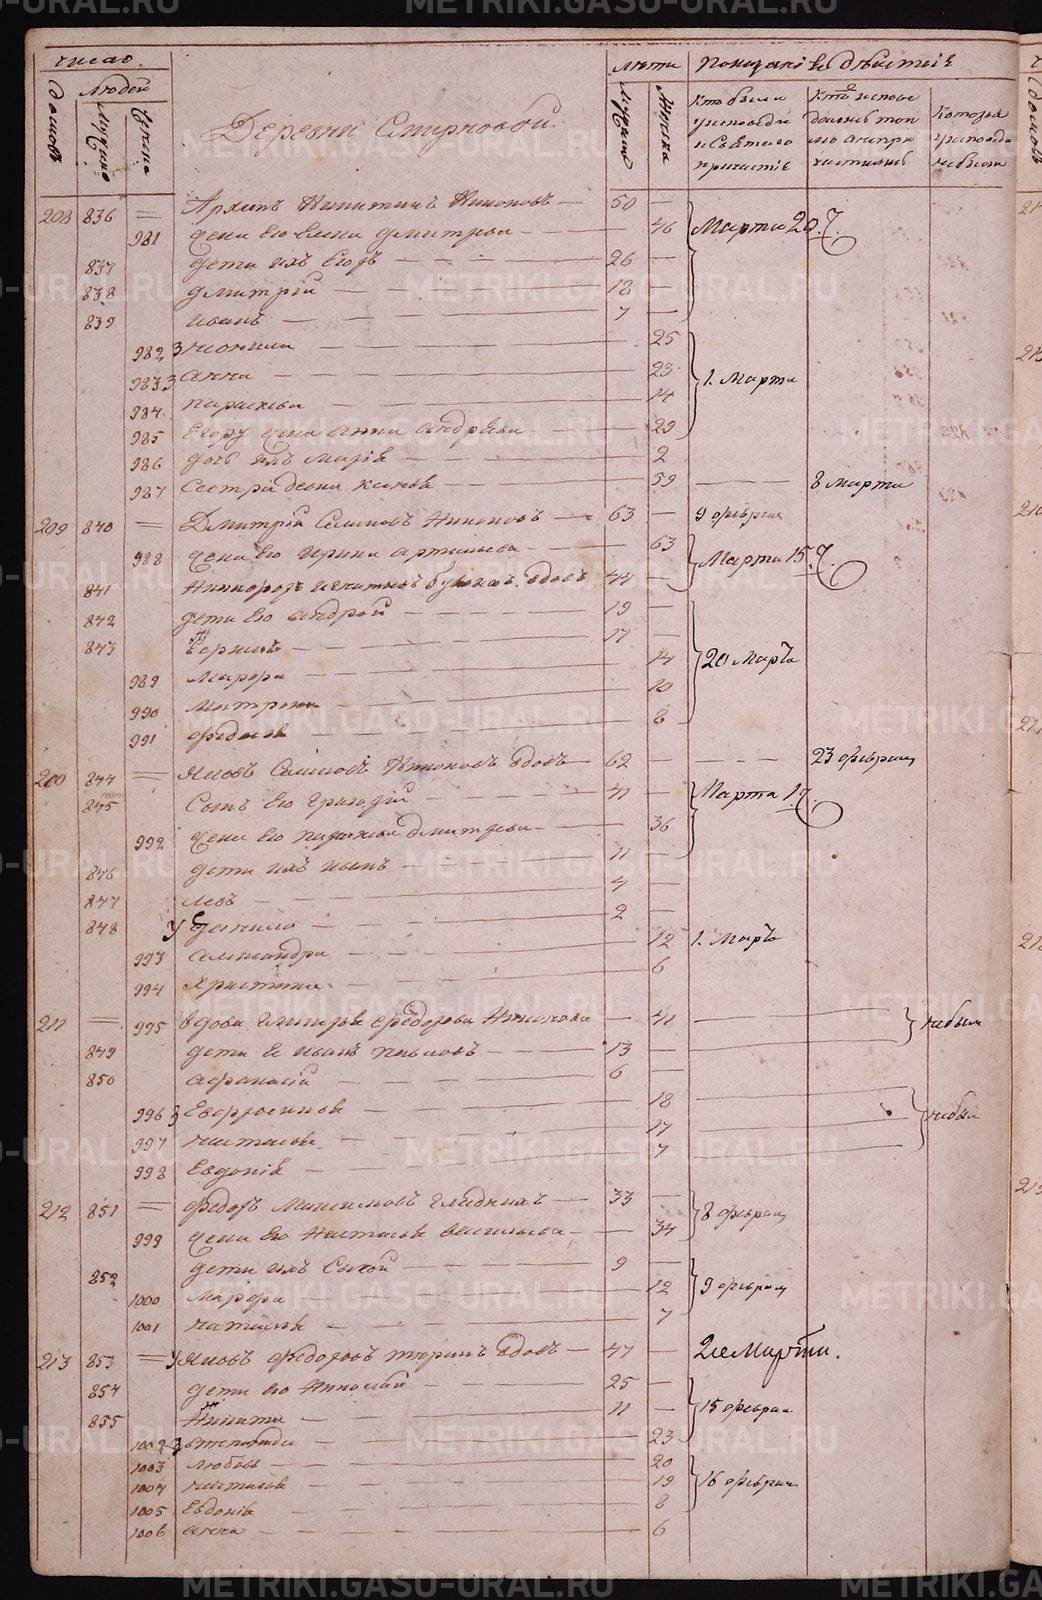 число
людей
домовъ
мужска
женска
Деревни Смирновой.
лѣта
мужска
женска
Показанiе дѣйствiя
Кто были у исповѣди и Святаго причастiя
Кто исповѣдались токмо а не причастились
Которые у исповѣди не были
208 836 = Архипъ Никитинъ Никоновъ 50 Марта 20.
981 жена его Елена Дмитрева 46
837 дети ихъ Егоръ 26
838 Дмитрiй 18
839 Иванъ 7
982 Неонила 25
983 Анна 23 1. Марта
984 Параскева 14
985 Егору жена Анна Андрѣева 29
986 дочь ихъ Марiя 2
987 Сестра девка 59 8 Марта
209 840 = Дмитрiй Никоновъ 63 9 феврал
988 жена его Ирина Артемьева 63 Марта 15.
841 вдовъ 44
842 дети его Андрей 19
843 17
989 Марфа 14 20 Мартъ
990 Матрона 10
991 Федосья 8
200 844 = Яковъ Никоновъ вдовъ 62 23 феврал
845 Сынъ его Григорiй 41 Марта 19.
992 жена его Параскева Дмитрева 36
846 дети ихъ Иванъ 11
847 Левъ 4
848 Данило 2
993 Александра 12 1. Мартъ
994 Христина 6
211 = 995 вдова Федорова Никонова 41 небыли
849 дети ее Иванъ 13
850 Афанасiй 6
996 Евфросинья 18
997 Наталья 17 небыли
998 Евдокiя 7
212 851 = Федоръ Максимовъ Гладкихъ 33 8 феврал
999 жена его Настасья Васильева 34
852 дети ихъ 9
1000 Марфа 12 9 феврал
1001 Наталья 7
213 853 = Яковъ Федоровъ Тюринъ вдовъ 47 2ое Марта.
854 дети его Николай 25
855 Никита 11 15 феврал
1002 Степанида 23
1003 Любовь 20
1004 Наталья 19 16 феврал
1005 Евдокiя 8
1006 Анна 6
METRIKI.GASO-URAL.RU